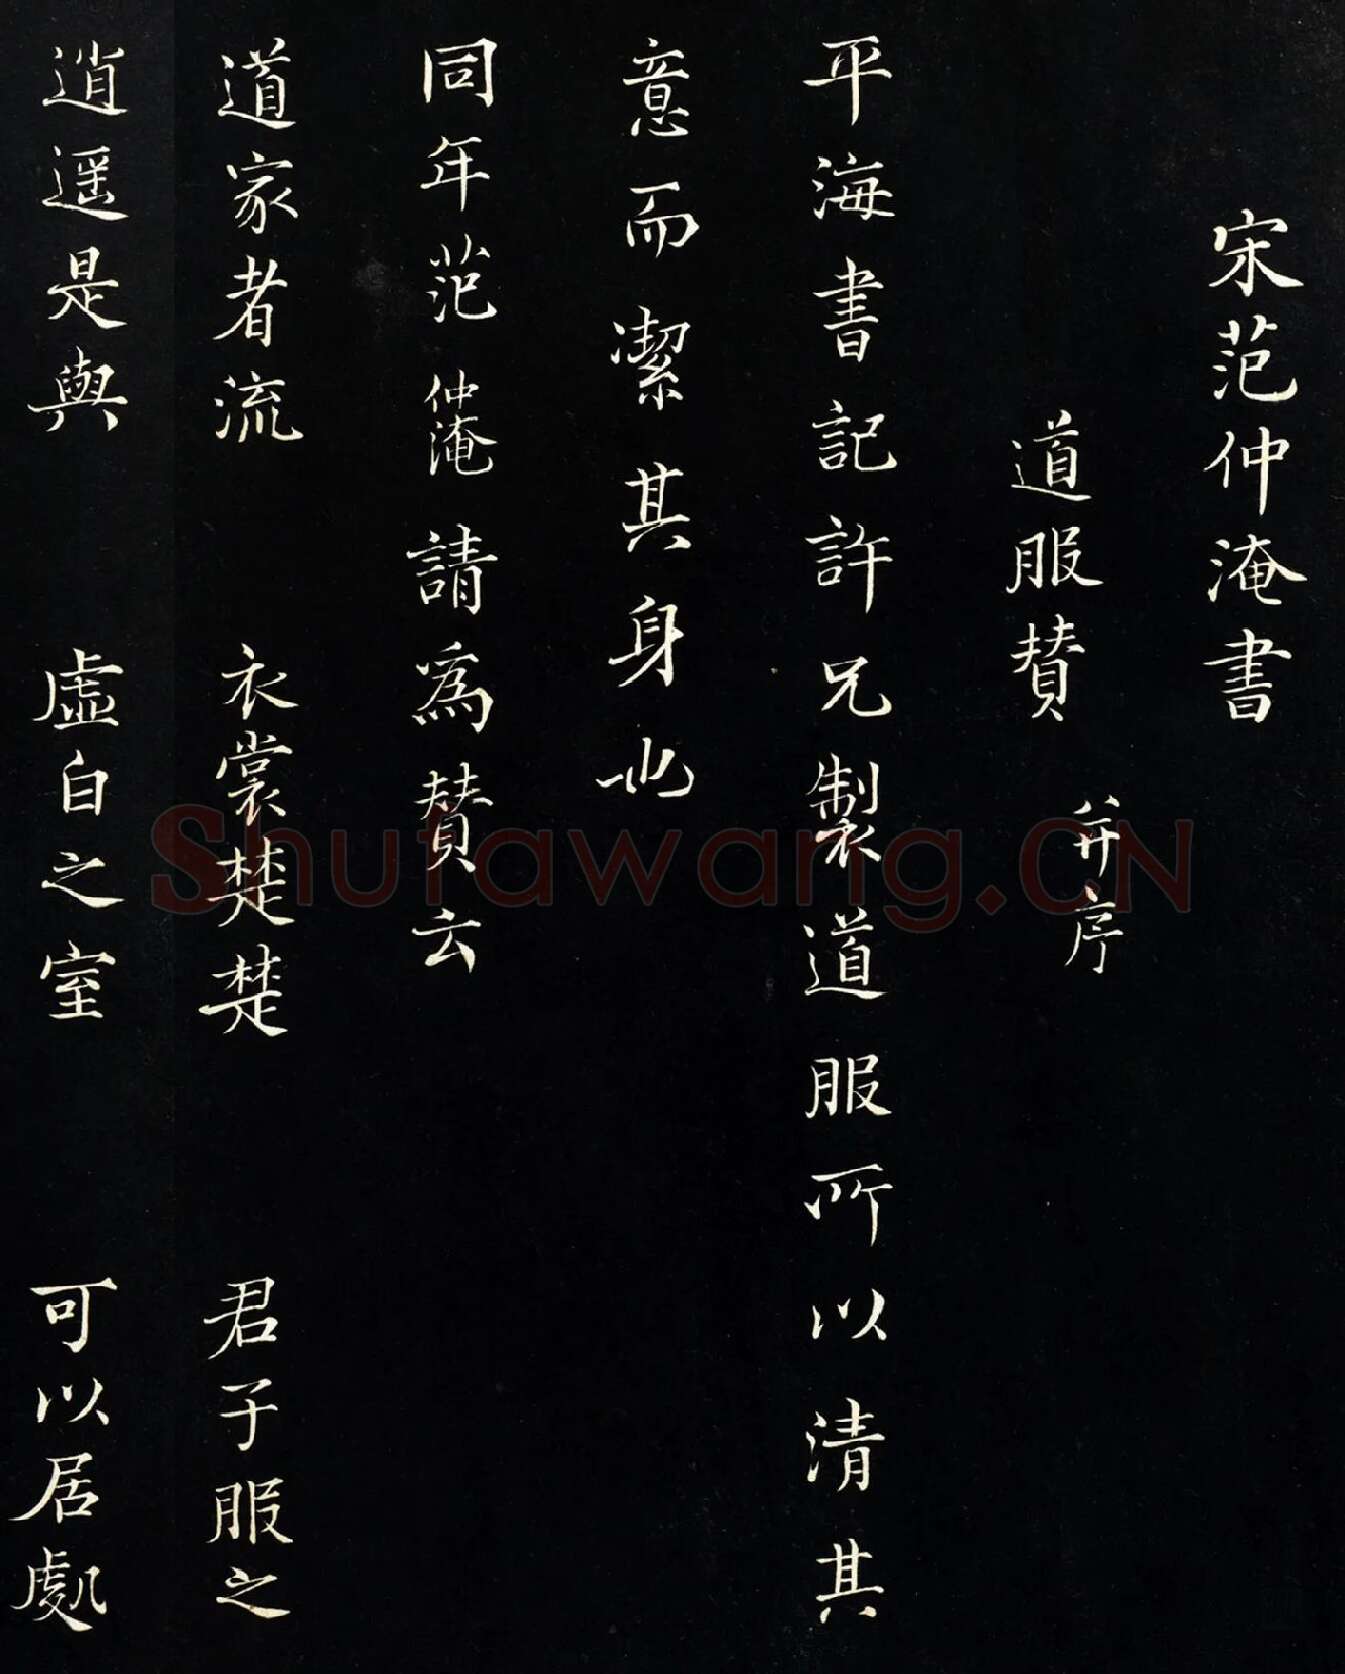 宋范仲淹書
道服賛
并序
平海書記許兄製道服所以清其
意而潔其身也
同年范仲淹請為賛云
道家者流 衣裳楚楚 君子服之
逍遥是與 虛白之室 可以居處
Shufawang.CN